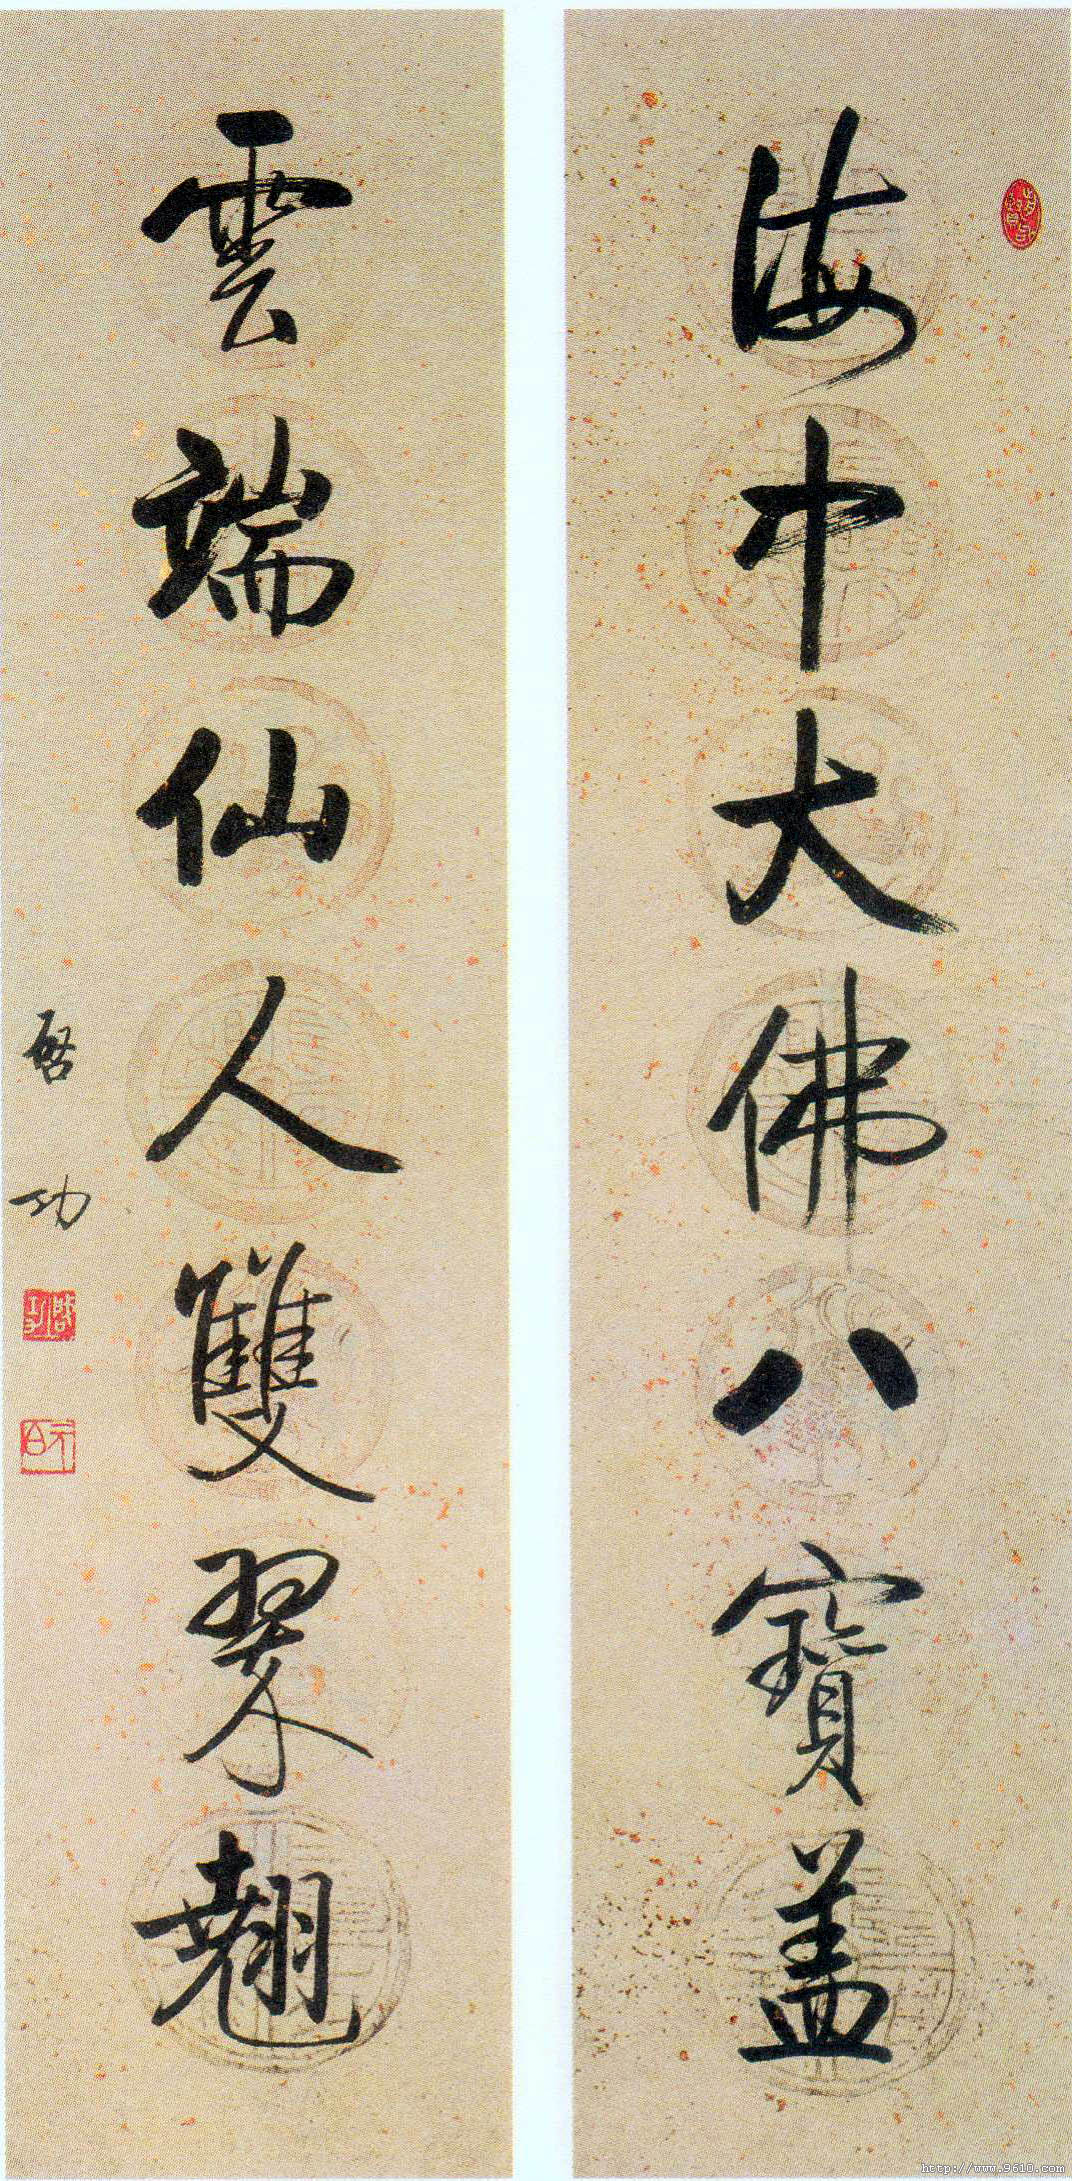 海中大佛八寶盖
雲端仙人雙翠翹
啓功
啓功
元白
http://www.9610.com